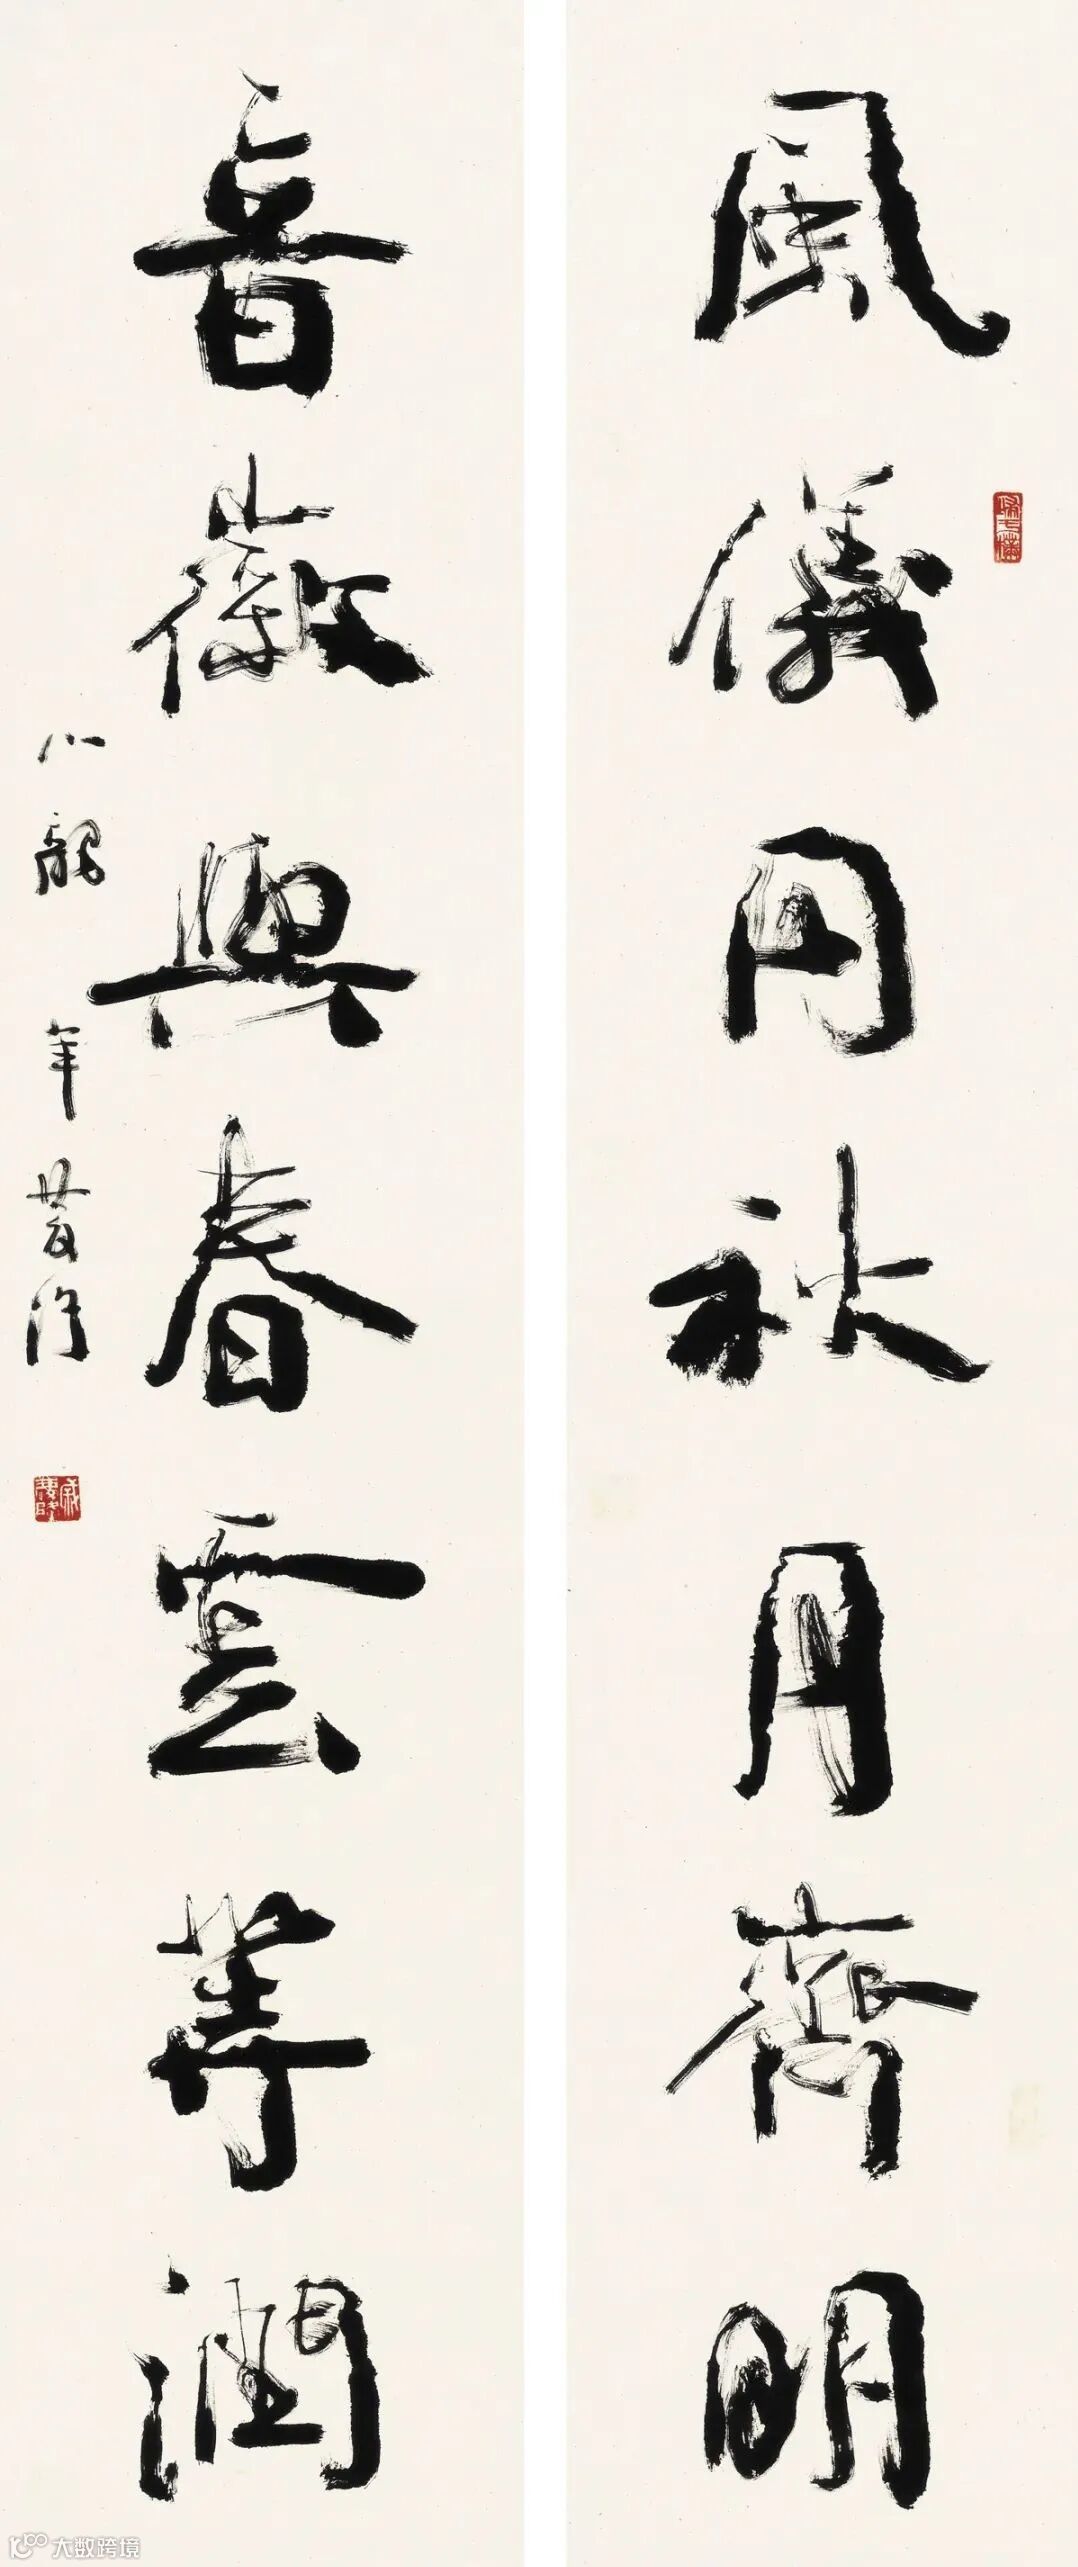 風儀同秋月齊明
音徽與春雲等潤
小龍年
大数跨境